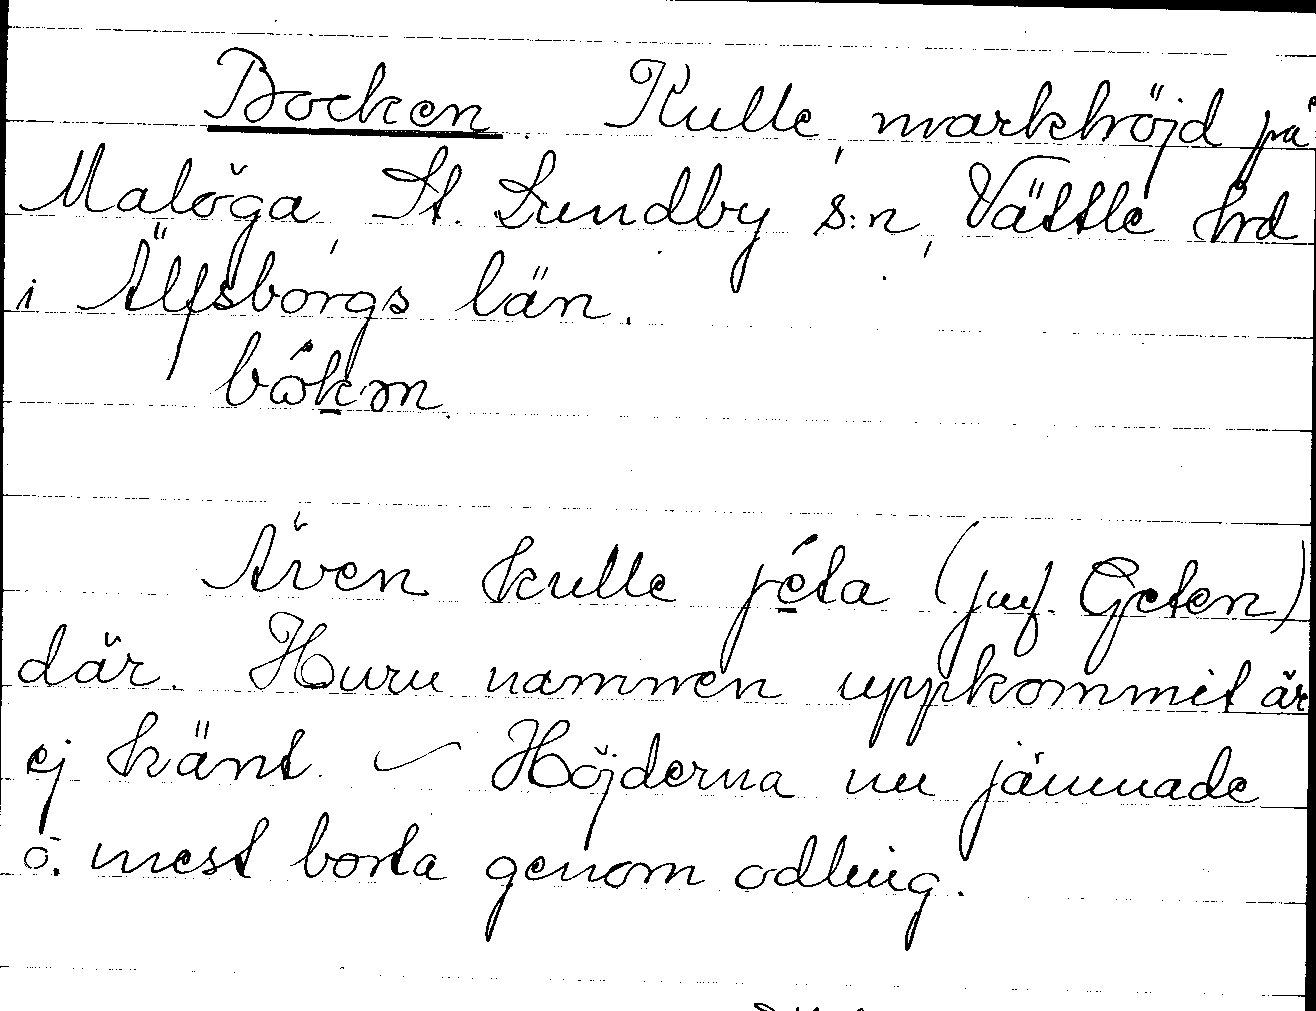 Bocken. Kulle, markhöjd på
Maløga, St. Lundby s:n, Vättle hrd
i Älfsborgs län.
Även kulle jéta (jmf. Geten)
där. Huru namnen uppkommit är
ej känt. – Höjderna nu jämnade
o. mest borta genom odling.